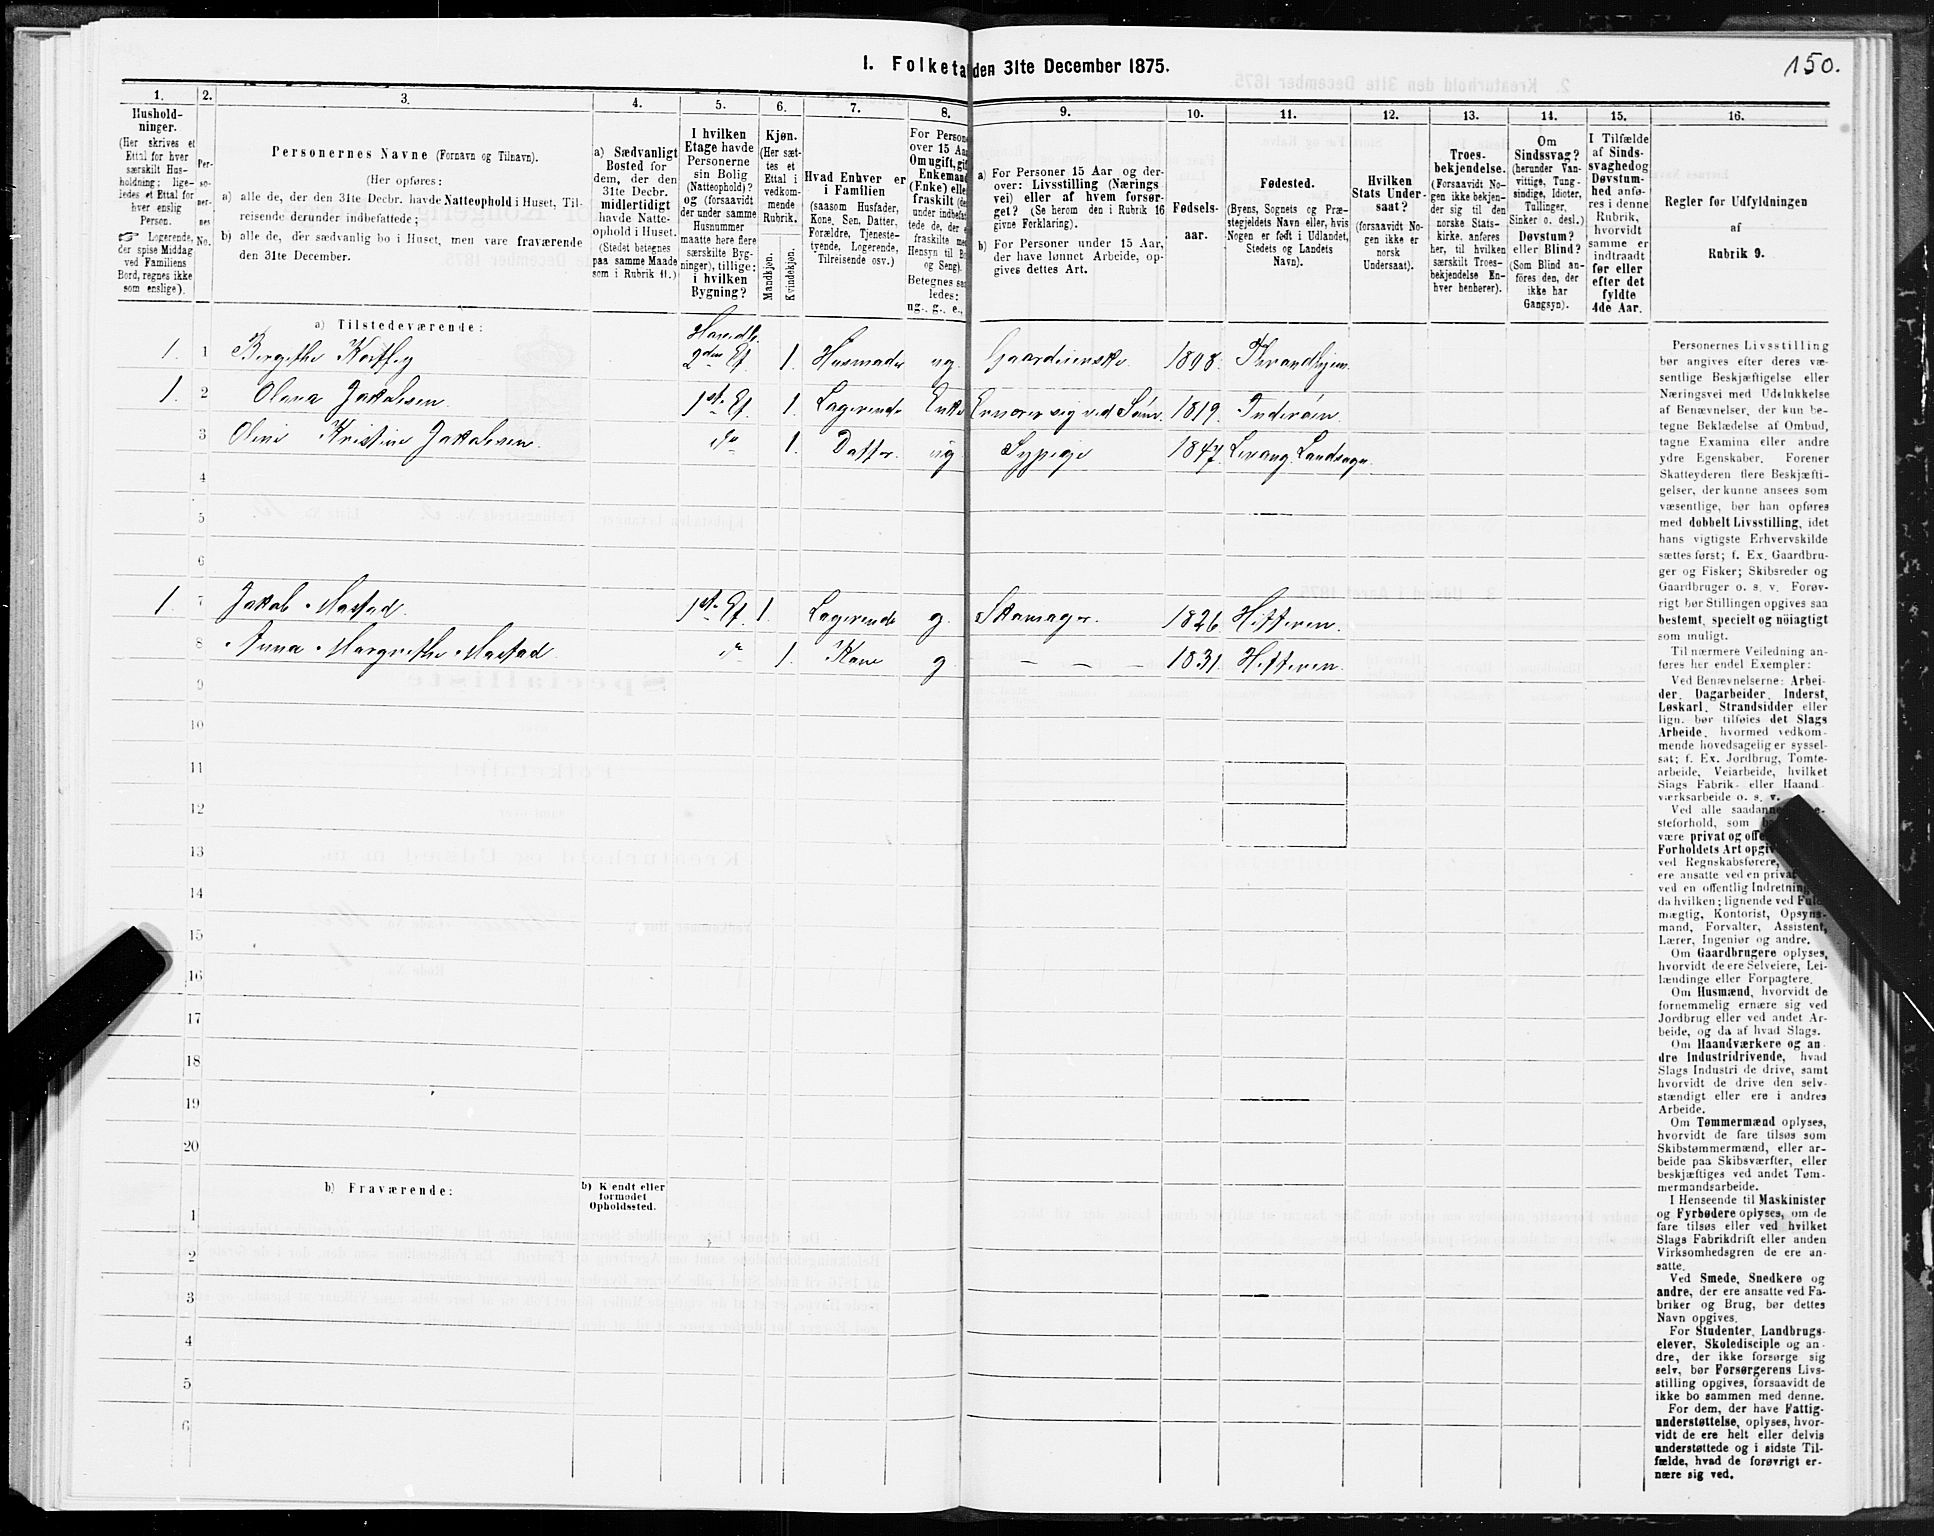 150.
I. Folketal den 31te December 1875.
1.
2.
3.
4.
5.
6.
7.
8.
9.
10.
11.
12.
13.
14.
15.
16.
Hushold-
ninger.
(Her skrives et
Ettal for hver
særskilt Hus-
holdning; lige-
ledes et Ettal for
hver enslig
Person.
☞ Logerende,
der spise Middag
ved Familiens
Bord, regnes ikke
som enslige).
Per-
so-
ner-
nes
No.
Personernes Navne (Fornavn og Tilnavn).
(Her opføres:
a) alle de, der den 31te Decbr. havde Natteophold i Huset, Til-
reisende derunder indbefattede;
b) alle de, der sædvanlig bo i Huset, men vare fraværende
den 31te December.
a) Sædvanligt
Bosted for
dem, der den
31te Decbr.
midlertidigt
havde Natte-
ophold i Huset.
(Stedet betegnes
paa samme Maade
som i Rubrik 11.)
I hvilken
Etage havde
Personerne
sin Bolig
(Natteophold)?
og (forsaavidt
der under samme
Husnummer
maatte høre flere
særskilte Byg-
ninger), tillige:
i hvilken
Bygning?
Kjøn.
(Her sæt-
tes et
Ettal i
vedkom-
mende
Rubrik.
Mandkjøn.
Kvindekjøn.
Hvad Enhver er
i Familien
(saasom Husfader,
Kone, Søn, Datter,
Forældre, Tjeneste-
tyende, Logerende,
Tilreisende osv.)
For Person
over 15 Aa
Om ugift, gif
Enkeman
(Enke) elle
fraskilt (de
under indbefa
tede de, der e
fraskilte m
Hensyn til B
og Seng).
Betegnes saa
ledes:
ug., g., e.,
a) For Personer 15 Aar og der-
over: Livsstilling (Nærings
vei) eller af hvem forsør-
get? (Se herom den i Rubrik 16
givne Forklaring).
b) For Personer under 15 Aar,
der have lønnet Arbeide, op-
gives dettes Art.
Fødsels-
aar.
Fødested.
(Byens, Sognets og Præ-
stegjeldets Navn eller, hvis
Nogen er født i Udlandet,
Stedets og Landets
Navn).
Hvilken
Stats Under-
saat?
(forsaavidt No-
gen ikke er
norsk
Undersaat).
Troes-
bekjendelse.
(Forsaavidt No-
gen ikke bekjen-
der sig til den
norske Stats-
kirke, anføres
her, til hvilken
særskilt Troes-
bekjendelse En-
hver henhører).
Om
Sindssvag?
(herunder Van-
vittige, Tung-
sindige, Idioter,
Tullinger,
Sinker o. desl.)
Døvstum?
eller Blind?
(Som Blind an-
føres den, der
ikke har
Gangsyn).
I Tilfælde
af Sinds-
svaghed og
Døvstum-
hed anfø-
res i denne
Rubrik,
hvorvidt
samme er
indtraadt
før eller
efter det
fyldte
4de Aar.
Regler for Udfyldningen
af
Rubrik 9.
a) Tilstedeværende:
1. 1 Birgithe Kortleg 2den Et. 1. Husmoder ug. 1808. Thrandhjem
1. 2 Olena Jakobsen 1ste Et. 1. Logerende Enke Ernærer sig ved Sønn. 1819. Inderøen
3 Oline Kristine Jakobsen do 1. Datter. ug Sypige 1847. Levang. Landsogn.
4
5
6
1. 7 Jakob Mastad 1ste Et. 1. Logerende g. Skomager. 1826. Hitteren.
8 Anna Margrethe Mastad do 1. Kone g. – – – 1831. Hitteren.
9
10
11
12
13
14
15
16
17
18
19
20
b) Fraværende:
b) Kjendt eller
formodet
Opholdssted.
1
2
3
4
5
6
Personernes Livsstilling
bør angives efter deres væ-
sentlige Beskjæftigelse eller
Næringsvei med Udelukkelse
af Benævnelser, der kun be-
tegne Beklædelse af Ombud,
tagne Examina eller andre
ydre Egenskaber. Forener
Skatteyderen flere Beskjæfti-
gelser, der kunne ansees som
væsentlige, bør han opføres
med dobbelt Livsstilling, idet
hans vigtigste Erhvervskilde
sættes først; f. Ex. Gaardbru-
ger og Fisker; Skibsreder og
Gaardbruger o. s. v. Forøv-
rigt bør Stillingen opgives saa
bestemt, specielt og nöiagtigt
som muligt.
Til nærmere Veiledning an-
føres her endel Exempler:
Ved Benævnelserne: Arbei-
der, Dagarbeider, Inderst,
Løskarl, Strandsidder eller
lign. bør tilføies det Slags
Arbeide, hvormed vedkom-
mende hovedsagelig er syssel-
sat; f. Ex. Jordbrug, Tomte-
arbeide, Veiarbeide, hvilket
Slags Fabrik- eller Haand-
værksarbeide o. s. v.
Ved alle saadanne
steforhold, som
være privat og offe
Forholdets Art opgiv
ved Regnskabsførere,
ere ansatte ved en privat
ved en offentlig Indretning
da hvilken; lignende ved Fuld-
mægtig, Kontorist, Opsyns-
mand, Forvalter, Assistent,
Lærer, Ingeniør og andre.
Om Gaardbrugere oplyses,
hvorvidt de ere Selveiere, Lei-
lændinge eller Forpagtere.
Om Husmænd, hvorvidt de
fornemmelig ernære sig ved
Jordbrug eller ved andet Ar-
beide, og da af hvad Slags.
Om Haandværkere og an-
dre Industridrivende, hvad
Slags Industri de drive, samt
hvorvidt de drive den selv-
stændigt eller ere i andres
Arbeide.
Om Tømmermænd oplyses,
hvorvidt de fare tilsøs som
Skibstømmermænd, eller ar-
beide paa Skibsværfter, eller
beskjæftiges ved andet Tøm-
mermandsarbeide.
I Henseende til Maskinister
og Fyrbødere oplyses, om de
fare tilsøs eller ved hvilket
Slags Fabrikdrift eller anden
Virksomhedsgren de ere an-
satte.
Ved Smede, Snedkere og
andre, der ere ansatte ved Fa-
briker og Brug, bør dettes
Navn opgives.
For Studenter, Landbrugs-
elever, Skoledisciple og an-
dre, der ikke forsørge sig
selv, bør Forsørgerens Livs-
stilling opgives, forsaavidt de
ikke bo sammen med denne.
For dem, der have Fattig-
understøttelse, oplyses, hvor-
vidt de ere helt eller delvis
understøttede og i sidste Til-
fælde, hvad de forøvrigt er-
nære sig ved.